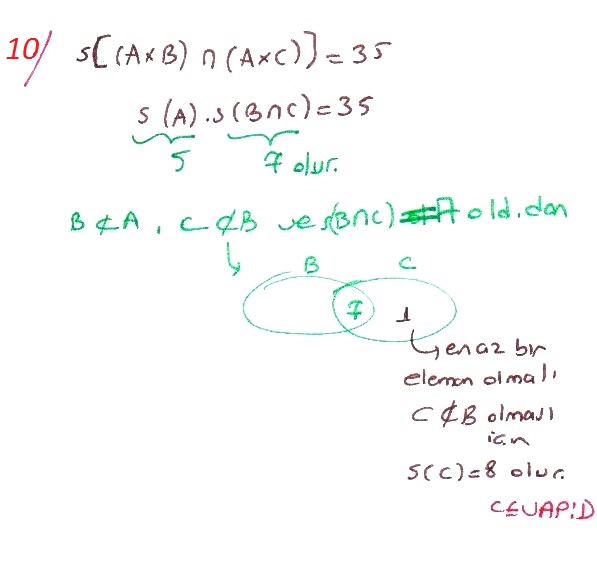 10/ s[(AxB) ∩ (AxC)] = 35
s(A).s(B∩C) = 35
5 7 olur.
B ⊄ A, C ⊄ B ve s(B∩C) = 7 old.dan
B C
7 1
en az bir
eleman olmalı
C ⊄ B olması
için
s(C) = 8 olur.
CEVAP:D